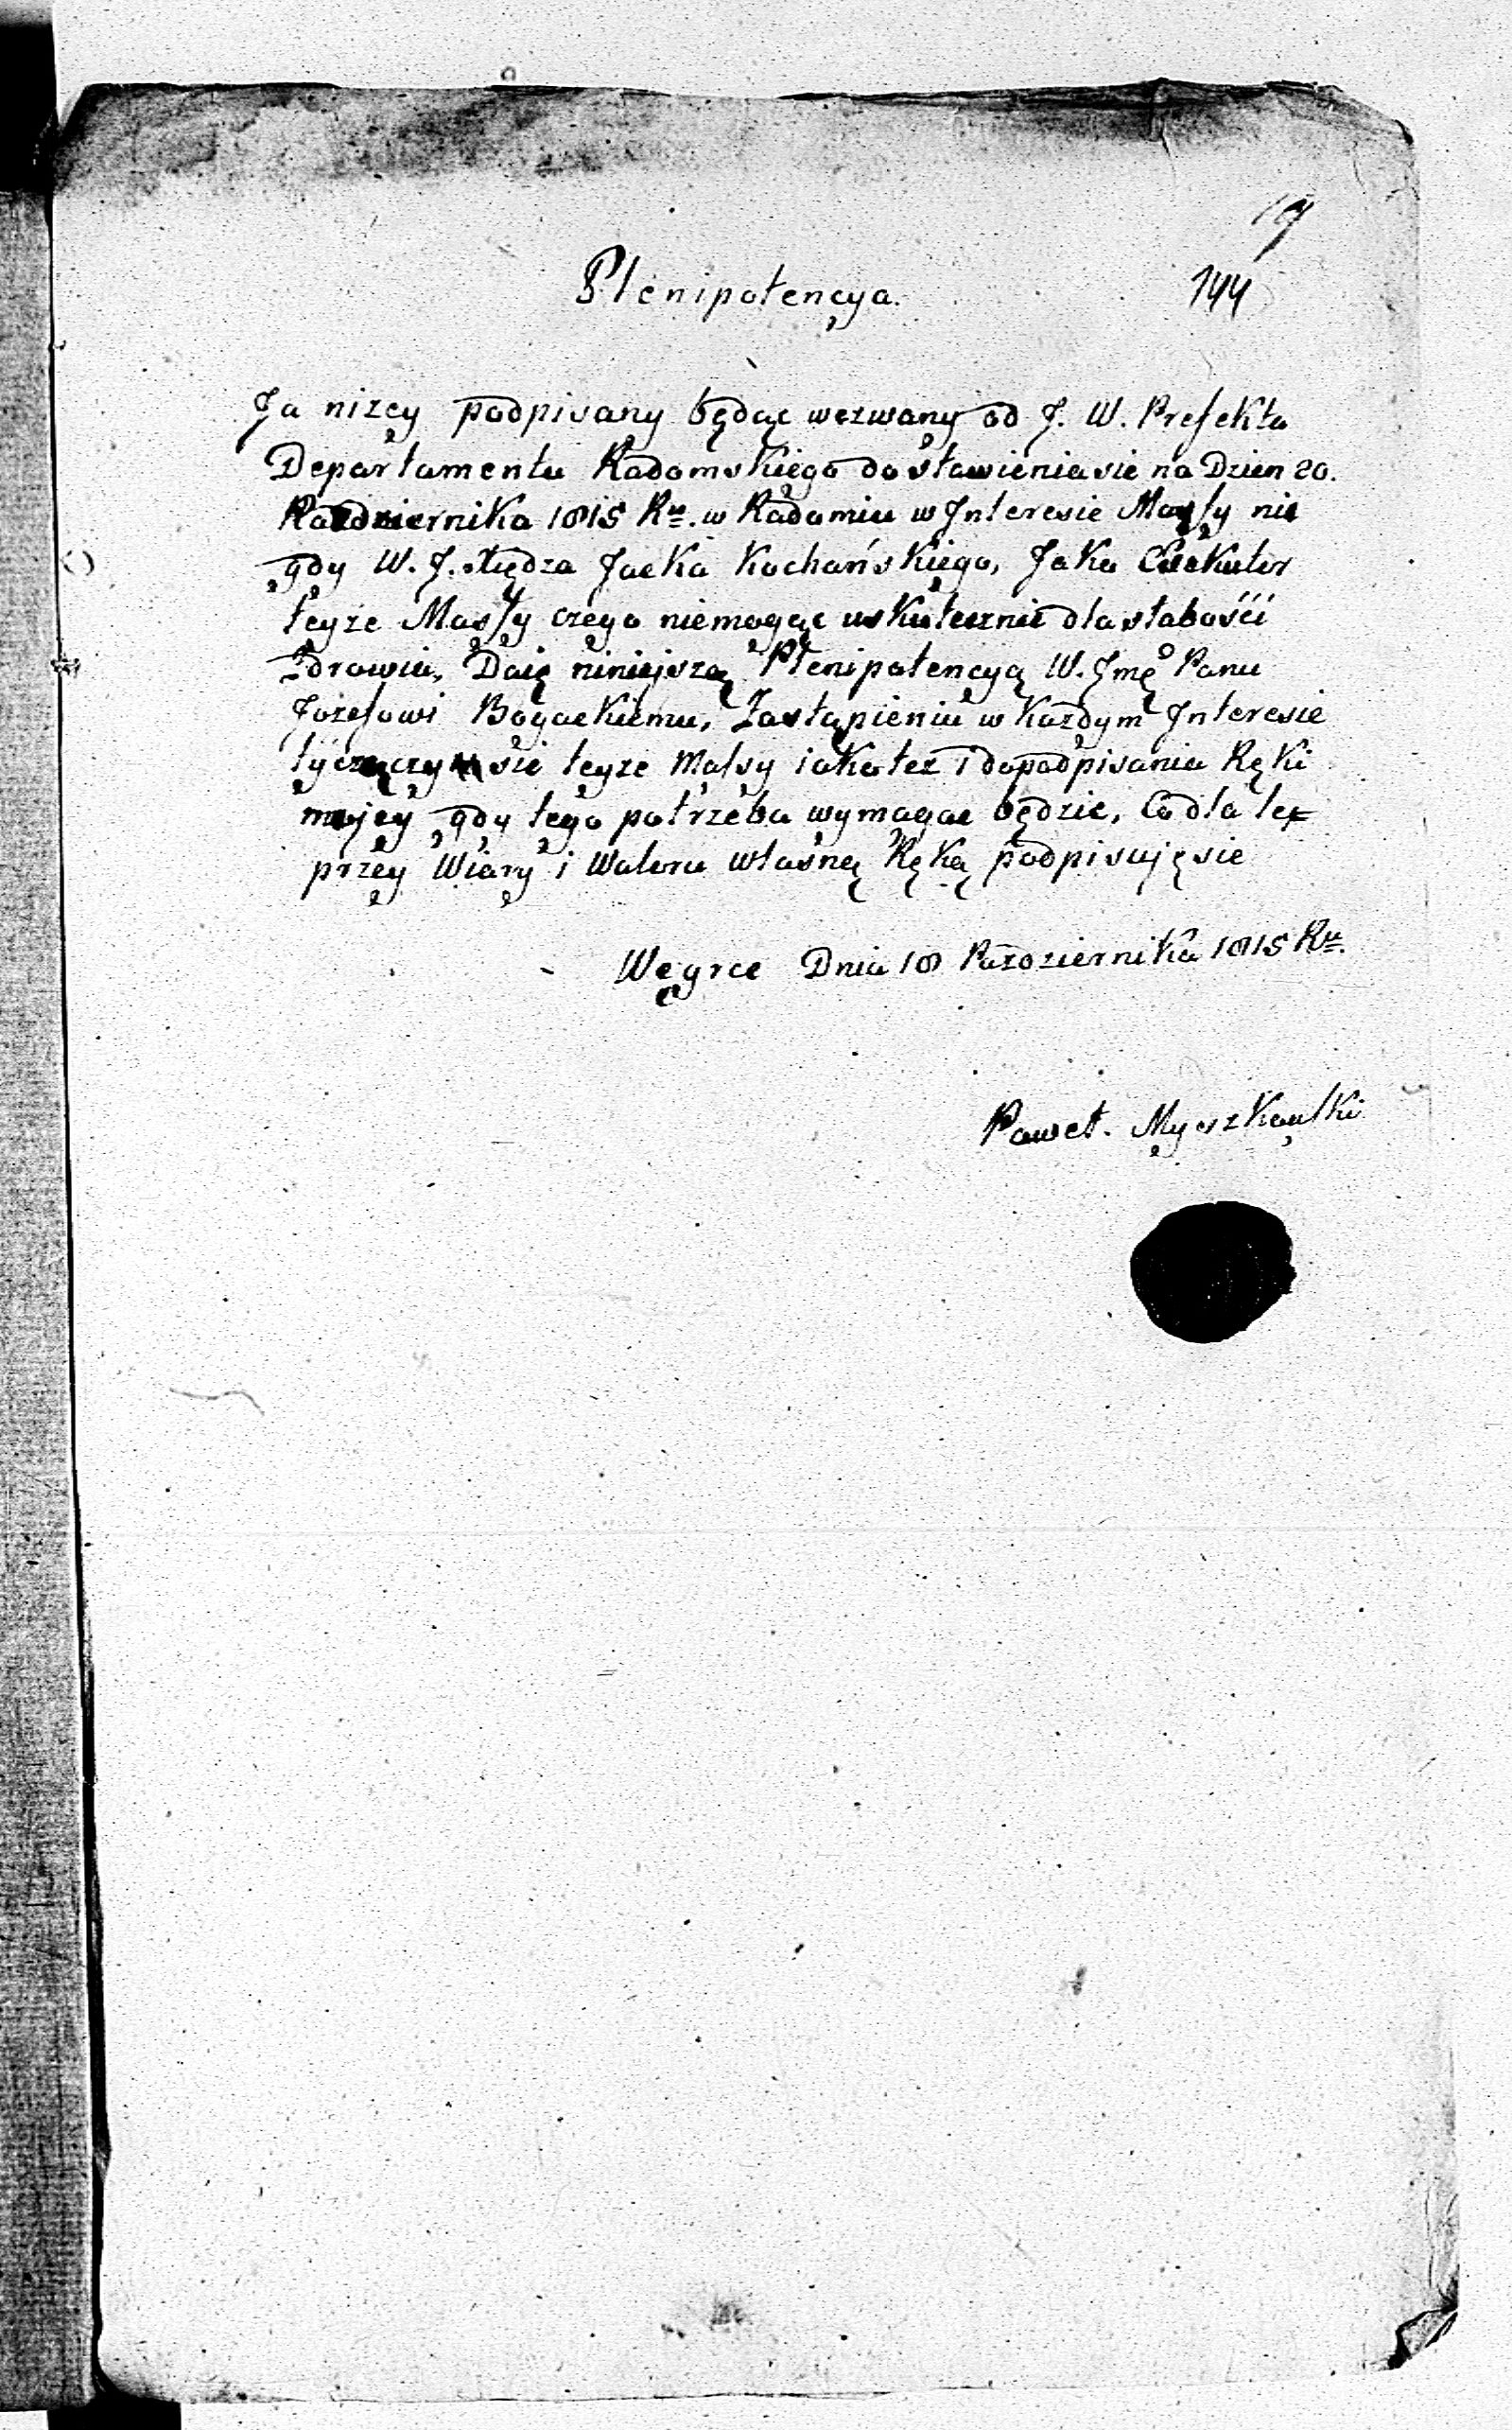 19
144
Plenipotencya.
Ja nizey podpisany będąc wezwany od J. W. Prefekta
Departamentu Radomskiego do stawienia sie na Dzien 20.
Pazdziernika 1815 Ru. w Radomiu w Interesie Massy nie
gdy W. J. Xiędza Jacka Kochańskiego, Jako Exekutor
teyze Massy czego niemogąc uskutecznić dla słabośći
Zdrowia, Daię ninieyszą Plenipotencyą W. Jmę Panu
Jozefowi Bogackiemu, Zastąpieniu w Każdym Interesie
tyczączym sie teyze Massy iako tez i do podpisania Ręki
mojey gdy tego potrzeba wymagac będzie, Co dla lep
przey Wiary i Waloru własną Ręką podpisuję sie
Węgrce Dnia 18 Pazdziernika 1815 Ru.
Paweł. Myszkowski